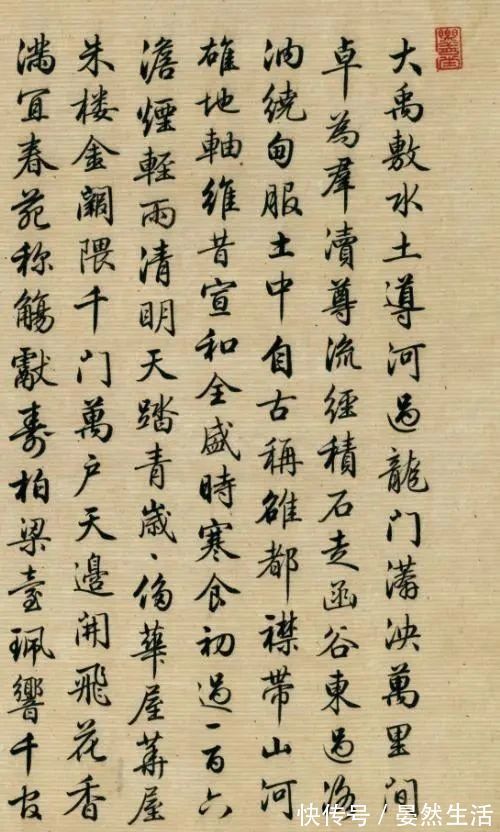 大禹敷水土導河過龍門漭泱萬里間
卓為羣瀆尊流經積石走函谷東過洛
汭繞甸服土中自古稱雒都襟帶山河
雄地軸維昔宣和全盛時寒食初過一百六
澹煙輕雨清明天踏青歲、侈華屋華屋
朱楼金闕隈千門萬户天邊開飛花香
满宜春苑称觴獻壽柏梁臺珮響千官
快传号/晏然生活